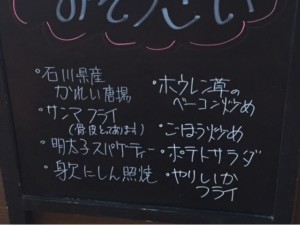 おそうざい
・石川県産
かれい唐揚
・サンマフライ
(骨皮とってあります)
・明太子スパゲティー
・身欠にしん照焼
・ホウレン草の
ベーコン炒め
・ごぼう炒め
・ポテトサラダ
・やりいか
フライ